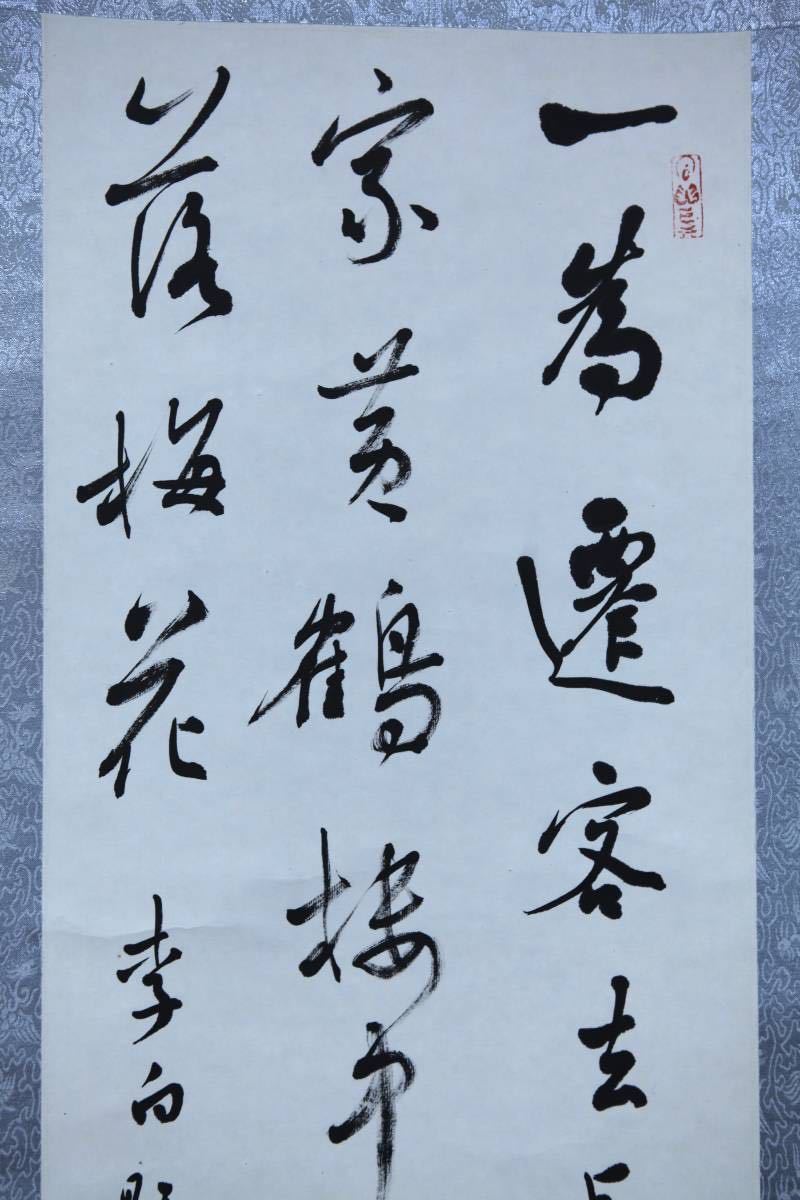 一為遷客去長
家黃鶴樓中
落梅花 李白